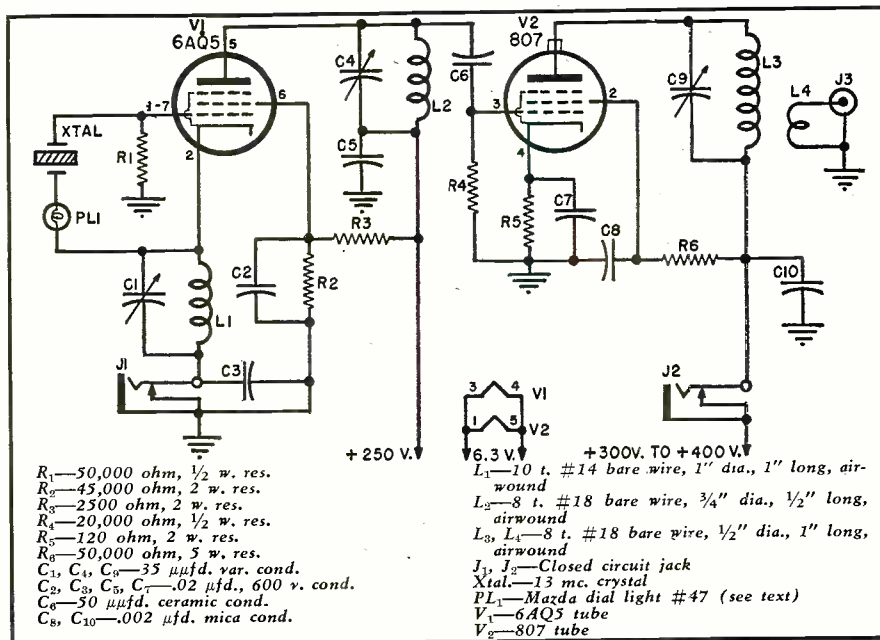 V1
6AQ5
5
1-7
6
2
XTAL
R1
PL1
C1
L1
C2
R2
R3
C3
J1
C4
C5
L2
+250 V.
C6
V2
807
3
2
4
R4
R5
C7
C8
R6
C9
L3
L4
J3
C10
J2
3 4 V1
1 5 V2
6.3 V.
+300V. TO +400 V.
R1—50,000 ohm, 1/2 w. res.
R2—45,000 ohm, 2 w. res.
R3—2500 ohm, 2 w. res.
R4—20,000 ohm, 1/2 w. res.
R5—120 ohm, 2 w. res.
R6—50,000 ohm, 5 w. res.
C1, C4, C9—35 μμfd. var. cond.
C2, C3, C5, C7—.02 μfd., 600 v. cond.
C6—50 μμfd. ceramic cond.
C8, C10—.002 μfd. mica cond.
L1—10 t. #14 bare wire, 1" dia., 1" long, air-
wound
L2—8 t. #18 bare wire, 3/4" dia., 1/2" long,
airwound
L3, L4—8 t. #18 bare wire, 1/2" dia., 1" long,
airwound
J1, J2—Closed circuit jack
Xtal.—13 mc. crystal
PL1—Mazda dial light #47 (see text)
V1—6AQ5 tube
V2—807 tube